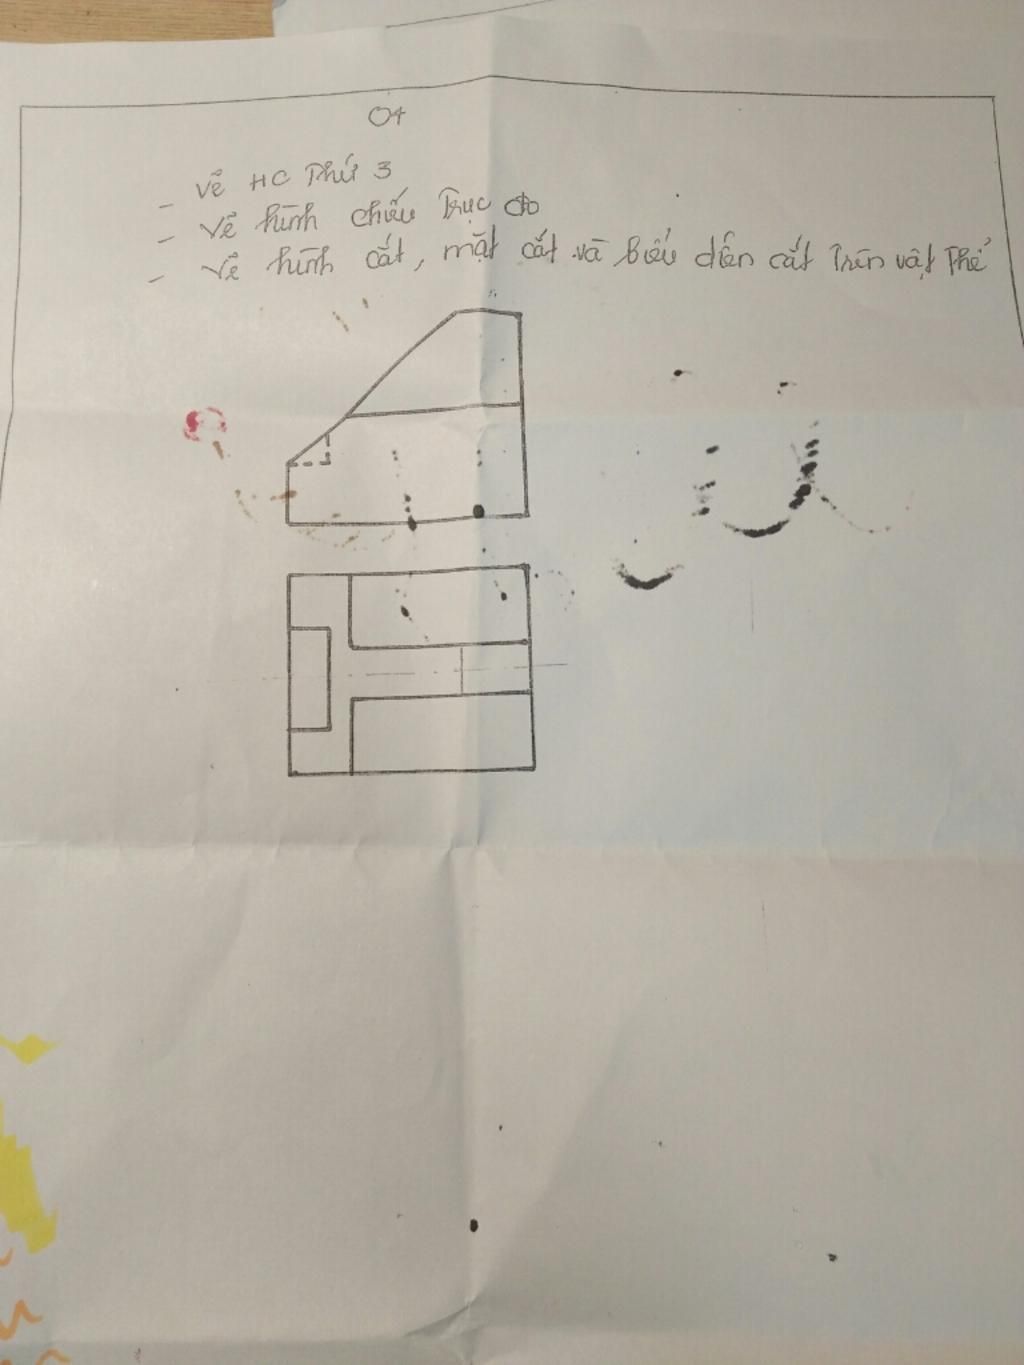 04
- Vẽ HC Thứ 3
- Vẽ hình chiếu Trục đo
- Vẽ hình cắt, mặt cắt và biểu diễn cắt Trên vật Thể